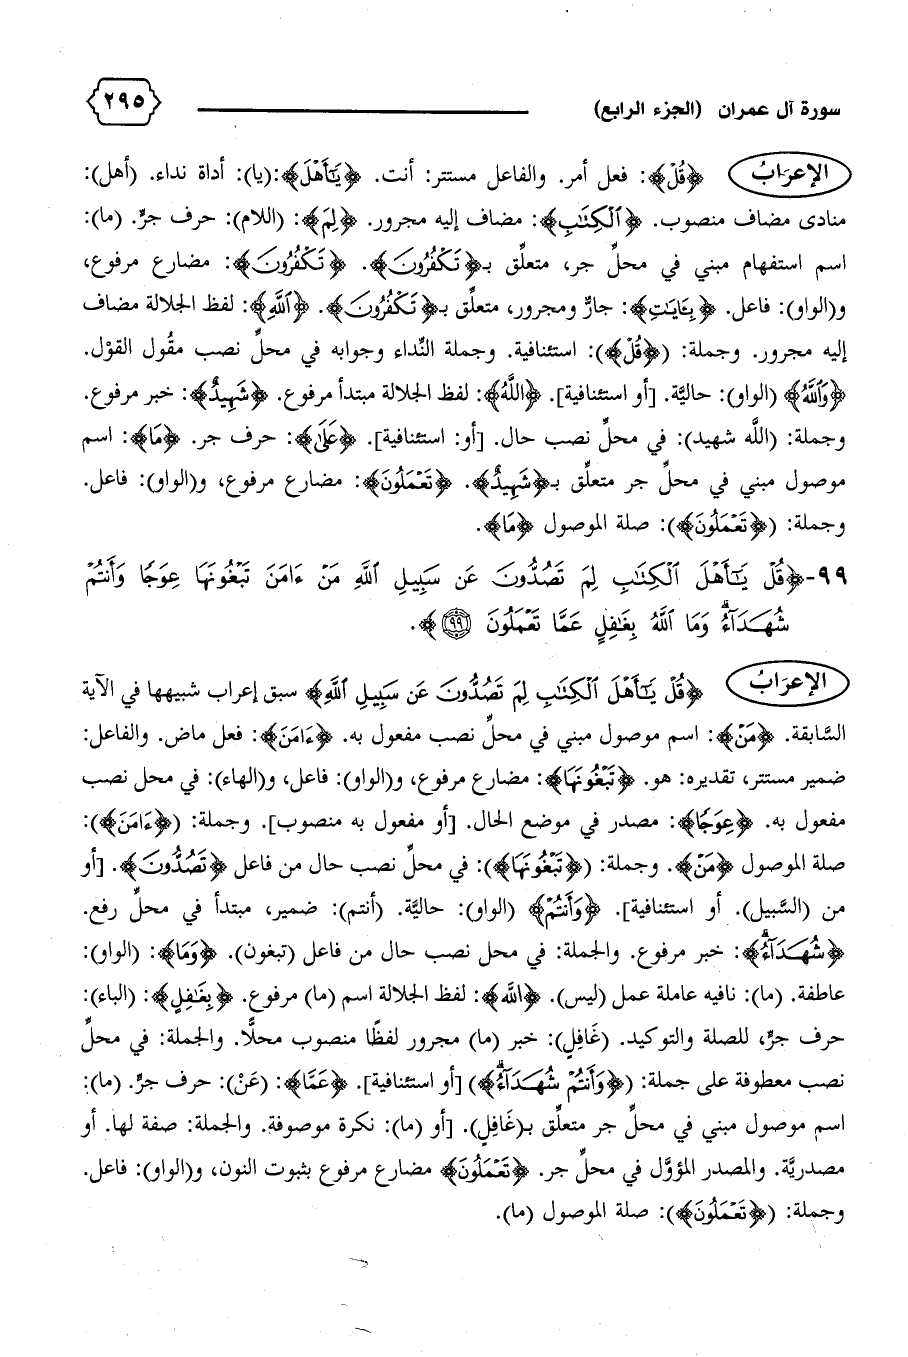 سورة آل عمران (الجزء الرابع) ٢٩٥
الإعرَابُ ﴿قُلْ﴾: فعل أمر. والفاعل مستتر: أنت. ﴿يَٰٓأَهْلَ﴾:(يا): أداة نداء. (أهل):
منادى مضاف منصوب. ﴿ٱلْكِتَٰبِ﴾: مضاف إليه مجرور. ﴿لِمَ﴾: (اللام): حرف جرٍّ. (ما):
اسم استفهام مبني في محلِّ جر، متعلِّق بـ﴿تَكْفُرُونَ﴾. ﴿تَكْفُرُونَ﴾: مضارع مرفوع،
و(الواو): فاعل. ﴿بِـَٔايَٰتِ﴾: جارٌّ ومجرور، متعلِّق بـ﴿تَكْفُرُونَ﴾. ﴿ٱللَّهِ﴾: لفظ الجلالة مضاف
إليه مجرور. وجملة: (﴿قُلْ﴾): استئنافية. وجملة النِّداء وجوابه في محلِّ نصب مقُول القوْل.
﴿وَٱللَّهُ﴾ (الواو): حاليَّة. [أو استئنافية]. ﴿اللَّهُ﴾: لفظ الجلالة مبتدأ مرفوع. ﴿شَهِيدٌ﴾: خبر مرفوع.
وجملة: (اللَّه شهيد): في محلِّ نصب حال. [أو: استئنافية]. ﴿عَلَىٰ﴾: حرف جر. ﴿مَا﴾: اسم
موصول مبني في محلِّ جر متعلِّق بـ﴿شَهِيدٌ﴾. ﴿تَعْمَلُونَ﴾: مضارع مرفوع، و(الواو): فاعل.
وجملة: (﴿تَعْمَلُونَ﴾): صلة الموصول ﴿مَا﴾.
٩٩-﴿قُلْ يَٰٓأَهْلَ ٱلْكِتَٰبِ لِمَ تَصُدُّونَ عَن سَبِيلِ ٱللَّهِ مَنْ ءَامَنَ تَبْغُونَهَا عِوَجًا وَأَنتُمْ
شُهَدَآءُ ۗ وَمَا ٱللَّهُ بِغَٰفِلٍ عَمَّا تَعْمَلُونَ ٩٩﴾.
الإعرَابُ ﴿قُلْ يَٰٓأَهْلَ ٱلْكِتَٰبِ لِمَ تَصُدُّونَ عَن سَبِيلِ ٱللَّهِ﴾ سبق إعراب شبيهها في الآية
السَّابقة. ﴿مَنْ﴾: اسم موصول مبني في محلِّ نصب مفعول به. ﴿ءَامَنَ﴾: فعل ماض. والفاعل:
ضمير مستتر، تقديره: هو. ﴿تَبْغُونَهَا﴾: مضارع مرفوع، و(الواو): فاعل، و(الهاء): في محل نصب
مفعول به. ﴿عِوَجًا﴾: مصدر في موضع الحال. [أو مفعول به منصوب]. وجملة: (﴿ءَامَنَ﴾):
صلة الموصول ﴿مَنْ﴾. وجملة: (﴿تَبْغُونَهَا﴾): في محلِّ نصب حال من فاعل ﴿تَصُدُّونَ﴾. [أو
من (السَّبيل). أو استئنافية]. ﴿وَأَنتُمْ﴾ (الواو): حاليَّة. (أنتم): ضمير، مبتدأ في محلِّ رفع.
﴿شُهَدَآءُ ۗ﴾: خبر مرفوع. والجملة: في محل نصب حال من فاعل (تبغون). ﴿وَمَا﴾: (الواو):
عاطفة. (ما): نافيه عاملة عمل (ليس). ﴿الله﴾: لفظ الجلالة اسم (ما) مرفوع. ﴿بِغَٰفِلٍ﴾: (الباء):
حرف جرٍّ، للصلة والتوكيد. (غَافِلٍ): خبر (ما) مجرور لفظًا منصوب محلًّا. والجملة: في محلِّ
نصب معطوفة على جملة: (﴿وَأَنتُمْ شُهَدَآءُ ۗ﴾) [أو استئنافية]. ﴿عَمَّا﴾: (عَنْ): حرف جرٍّ. (ما):
اسم موصول مبني في محلِّ جر متعلِّق بـ(غَافِلٍ). [أو (ما): نكرة موصوفة. والجملة: صفة لها. أو
مصدريَّة. والمصدر المؤوَّل في محلِّ جر. ﴿تَعْمَلُونَ﴾ مضارع مرفوع بثبوت النون، و(الواو): فاعل.
وجملة: (﴿تَعْمَلُونَ﴾): صلة الموصول (ما).